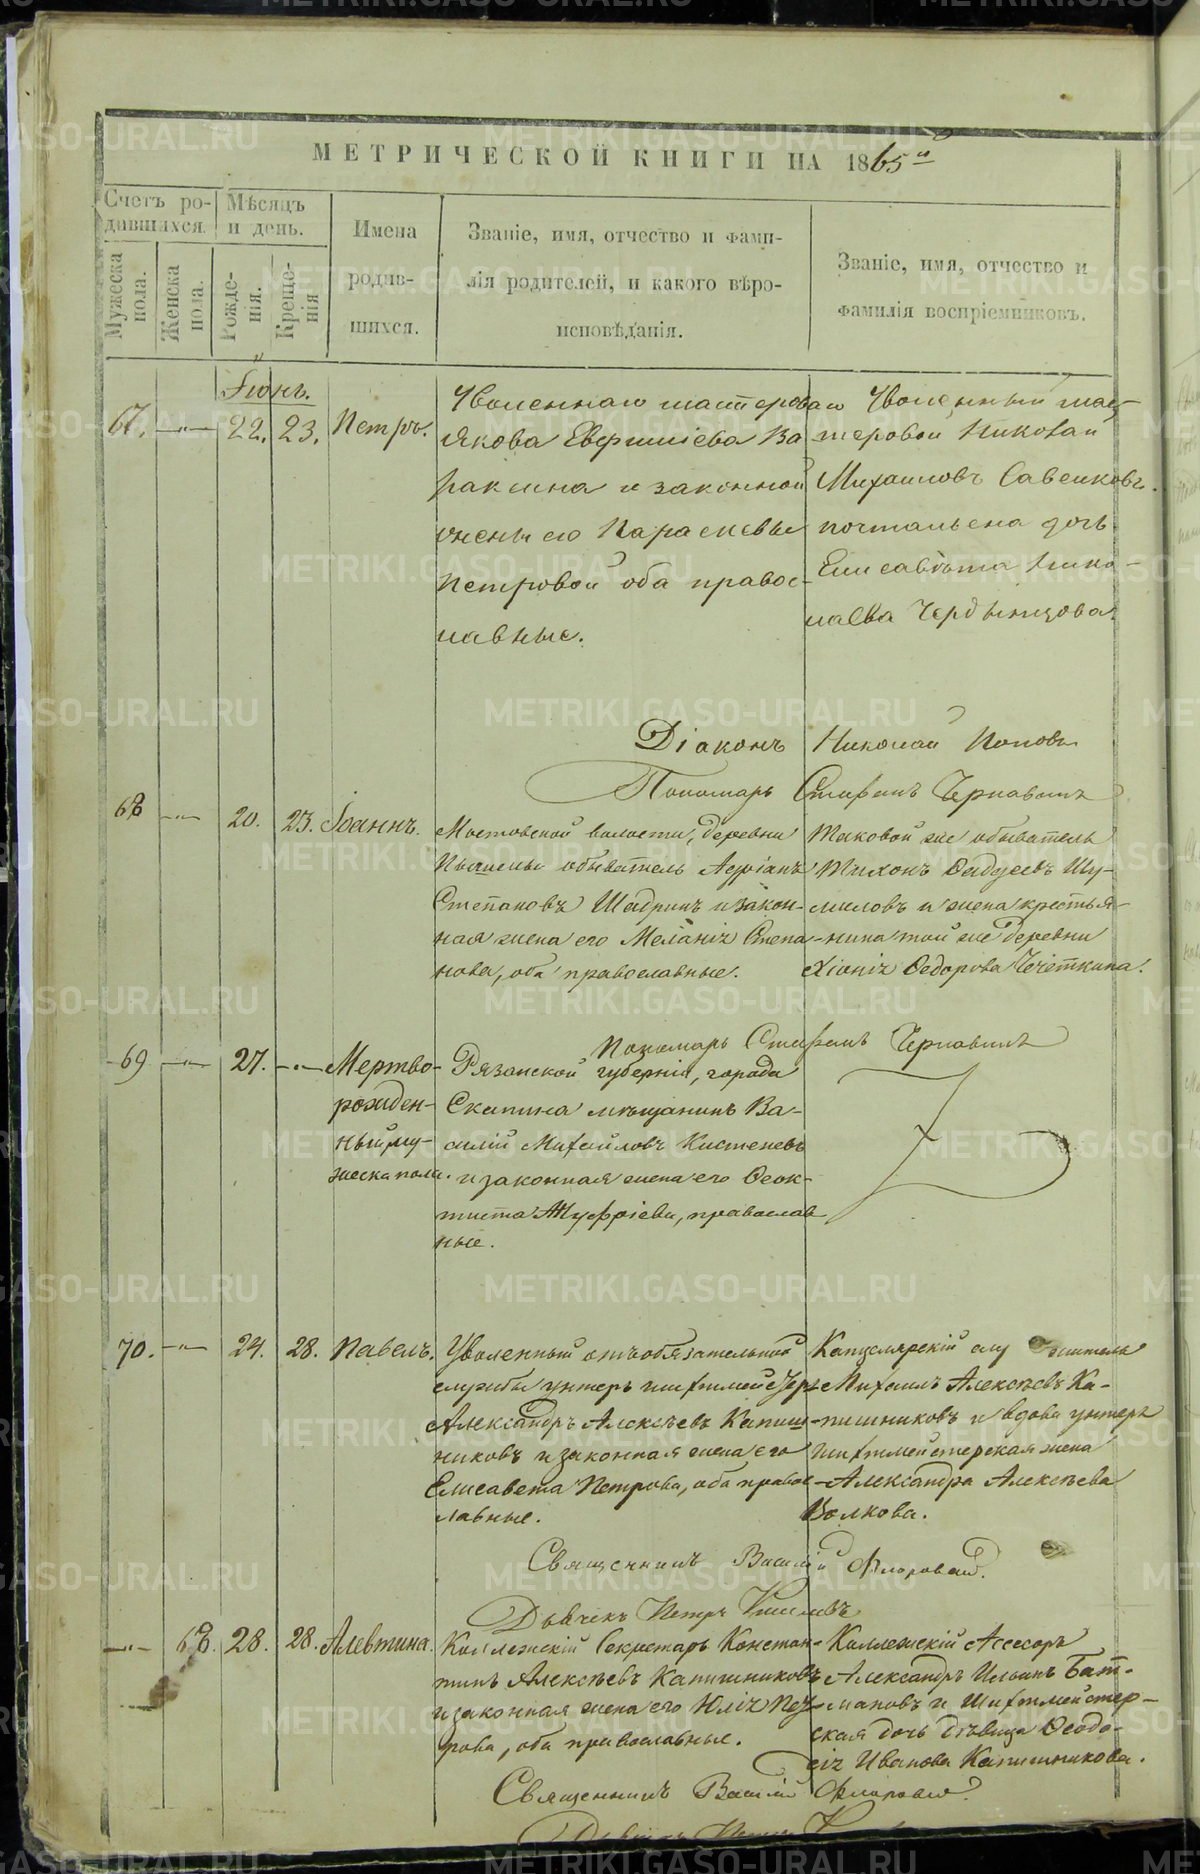 МЕТРИЧЕСКОЙ КНИГИ НА 1865й
Счетъ ро-
дившихся.
Мѣсяцъ
и день.
Мужеска
пола.
Женска
пола.
Рожде-
нія.
Креще-
нія
Имена
родив-
шихся.
Званіе, имя, отчество и фами-
лія родителей, и какого вѣро-
исповѣданія.
Званіе, имя, отчество и
фамилія воспріемниковъ.
Іюнь.
67. 22. 23. Петръ.
Уволеннаго мастероваго
Якова Евфиміева Ва
ракина и законной
жены его Параскевы
Петровой оба правос-
лавные.
Уволенный мас-
теровой Николай
Михаиловъ Савенковъ.
почтальона дочь
Елисавѣта Нико-
лаева Чердынцова.
Діаконъ Николай Поповъ
Пономарь Стефанъ Чернавинъ
68 20. 23. Іоаннъ.
Мостовской волости, деревни
обыватель Адріанъ
Степановъ Шадринъ и закон-
ная жена его Меланія Степа-
нова, оба православные.
Таковой же обыватель
Тихонъ Фадѣевъ Шу-
миловъ и жена крестья-
нина той же деревни
Хіонія Федорова Чечеткина.
Пономарь Стефанъ Чернавинъ
69 27. Мертво-
рожден-
ный му-
жеска пола.
Рязанской губерніи, города
Скапина мѣщанинъ Ва-
силій Михайловъ Кистеневъ
и законная жена его Феок-
тиста православ
ные.
70. 24. 28. Павелъ.
Уволенный отъ обязательной
службы унтеръ шихтмейстеръ
Александръ Алексѣевъ Капиш-
никовъ и законная жена его
Елисавета Петрова, оба правос-
лавные.
Канцелярскій служитель
Михаилъ Алексѣевъ Ка-
пишниковъ и вдова унтеръ
шихтмейстерская жена
Александра Алексѣева
Волкова.
Священникъ Василій Флоровскій.
Дьячекъ Петръ Киселевъ
68. 28. 28. Алевтина.
Коллежскій Секретарь Констан-
тинъ Алексѣевъ Капишниковъ
и законная жена его Юлія Пет-
рова, оба православные.
Коллежскій Асессоръ
Александръ Ильинъ Бат-
мановъ и Шихтмейстер-
ская дочь дѣвица Феодо-
сія Иванова Капишникова.
Священникъ Василій Флоровскій.
METRIKI.GASO-URAL.RU